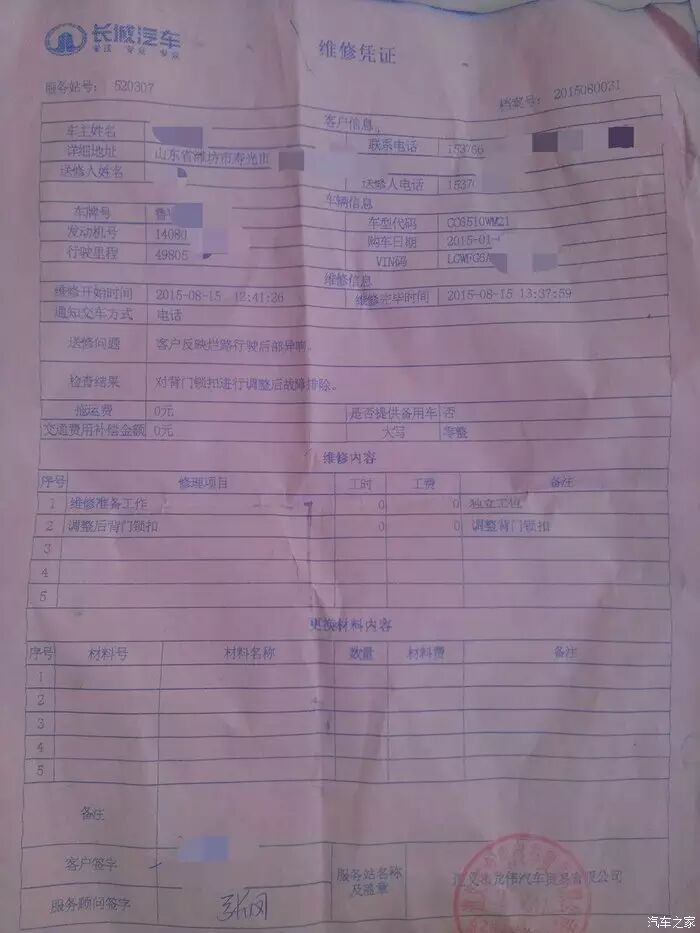 长城汽车
维修凭证
服务站号: 520307
档案号: 2015080031
客户信息
车主姓名
联系电话 153766
详细地址 山东省潍坊市寿光市
送修人姓名
送修人电话 1537
车辆信息
车牌号 鲁
车型代码 CC6510WM21
发动机号 14080
购车日期 2015-01-
行驶里程 49805
VIN码 LGWFG6A
维修信息
维修开始时间 2015-08-15 12:41:26 维修完毕时间 2015-08-15 13:37:59
通知交车方式 电话
送修问题 客户反映烂路行驶后部异响。
检查结果 对背门锁扣进行调整后故障排除。
拖运费 0元 是否提供备用车 否
交通费用补偿金额 0元 大写 零整
维修内容
序号 修理项目 工时 工费 备注
1 维修准备工作 0 0 独立工位
2 调整后背门锁扣 0 0 调整背门锁扣
3
4
5
更换材料内容
序号 材料号 材料名称 数量 材料费 备注
1
2
3
4
5
备注
客户签字
服务站名称及盖章
龙伟汽车贸易有限公司
服务顾问签字
汽车之家